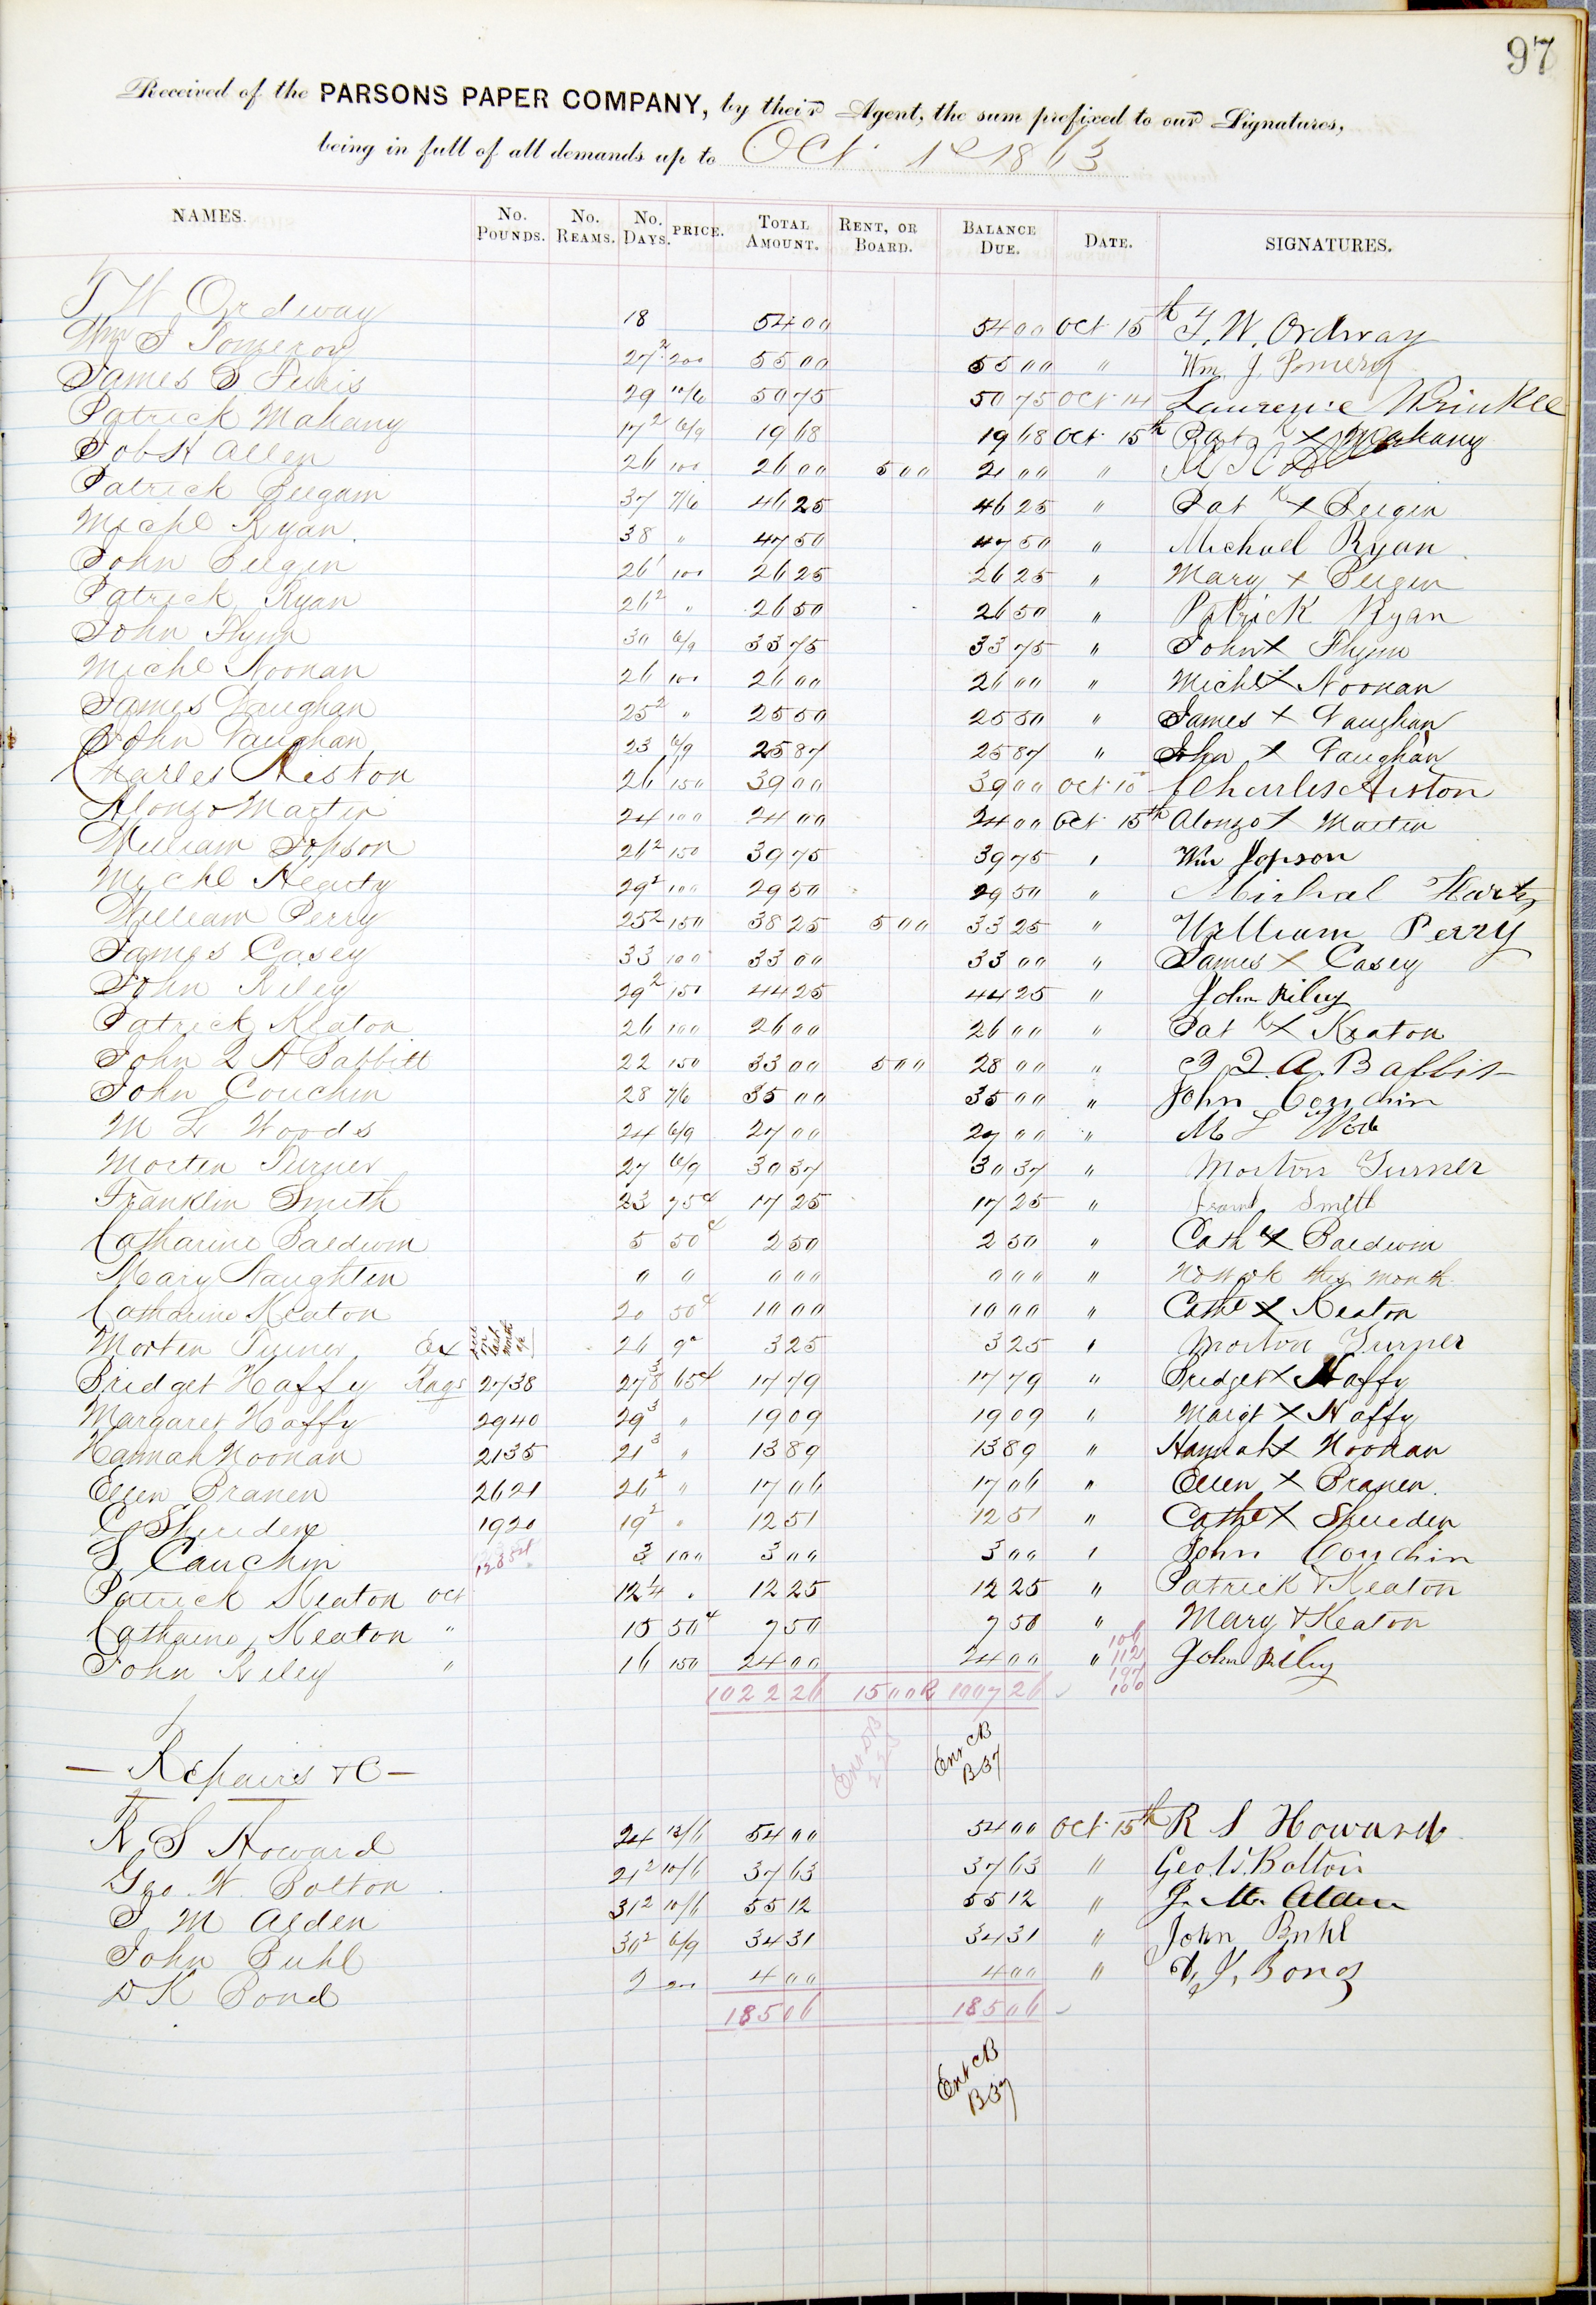 97
Received of the PARSONS PAPER COMPANY, by their Agent, the sum prefixed to our Signatures,
being in full of all demands up to Oct. 1st 1863
NAMES. No. Pounds. No. Reams. No. Days. PRICE. Total Amount. Rent, or Board. Balance Due. Date. SIGNATURES.
T W Ordway 18 54 00 54 00 Oct 15th T. W. Ordway
Wm J Pomeroy 27 2 200 55 00 55 00 " Wm. J. Pomeroy
James S 29 10/6 50 75 50 75 Oct 14 Laurence
Patrick Mahany 17 2 6/9 19 68 19 68 Oct 15th Patk x Mahany
Job H Allen 26 100 26 00 5 00 21 00 "
Patrick Bergain 37 7/6 46 25 46 25 " Patk x Bergin
Michl Ryan. 38 " 47 50 47 50 " Michael Ryan
John Bergin 26 1 100 26 25 26 25 " Mary x Bergin
Patrick Ryan 26 2 " 26 50 26 50 " Patrick Ryan
John Flynn 30 6/9 33 75 33 75 " John x Flynn
Michl Noonan 26 100 26 00 26 00 " Michl x Noonan
James Vaughan 25 2 " 25 50 25 50 " James x Vaughan
John Vaughan 23 6/9 25 87 25 87 " John x Vaughan
Charles Aiston 26 150 39 00 39 00 Oct 15 Charles Aiston
Alonzo Martin 24 100 24 00 24 00 Oct 15th Alonzo x Martin
William Jopson 26 2 150 39 75 39 75 " Wm Jopson
Michl Hearty 29 2 100 29 50 29 50 " Michal Harty
William Perry 25 2 150 38 25 5 00 33 25 " William Perry
James Casey 33 100 33 00 33 00 " James x Casey
John Riley 29 2 150 44 25 44 25 " John Riley
Patrick Keaton 26 100 26 00 26 00 " Patk x Keaton
John Q A Babbitt 22 150 33 00 5 00 28 00 " J. Q. A. Babbitt
John Couchin 28 7/6 35 00 35 00 " John Couchin
M L Woods 24 6/9 27 00 27 00 " M L
Morten Turner 27 6/9 30 37 30 37 " Morton Turner
Franklin Smith 23 75c 17 25 17 25 " Frank Smith
Catharine Baldwin 5 50c 2 50 2 50 " Cath x Baldwin
Mary Naughten 0 0 0 00 0 00 " No work this month
Catharine Keaton 20 50c 10 00 10 00 " Cathe x Keaton
Morten Turner Ex 26 3 25 3 25 " Morton Turner
Bridget Haffy Rags 2738 27 3/8 65c 17 79 17 79 " Bridget x Haffy
Margaret Haffy 2940 29 3 " 19 09 19 09 " Margt x Haffy
Hannah Noonan 2135 21 3 " 13 89 13 89 " Hannah x Noonan
Ellen Branen 2621 26 2 " 17 06 17 06 " Ellen x Branen.
C Shueden 1920 19 2 " 12 51 12 51 " Cathe x Shueden
J. Cauchin 3 100 3 00 3 00 " John Couchin
Patrick Keaton Oct 12 1/4 " 12 25 12 25 " Patrick x Keaton
Catharine Keaton " 15 50c 7 50 7 50 " Mary x Keaton
John Riley " 16 150 24 00 24 00 " John Riley
1022 26 15 00 R 1007 26
Ent CB
B37
— Repairs &C —
R. S Howard 24 13/6 54 00 54 00 Oct 15th R S Howard
Geo. W. Bolton 21 2 10/6 37 63 37 63 " Geo. W. Bolton
J M Alden 31 2 10/6 55 12 55 12 " J. M. Alden
John Buhl 30 2 6/9 34 31 34 31 " John Buhl
D K Bond 2 200 4 00 4 00 "
185 06 185 06
Ent CB
B37